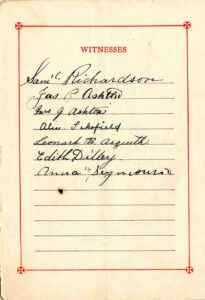 WITNESSES
Sam'l Richardson
Jas P Ashton
Mrs J Ashton
Alec Schofield
Leonard B Asquith
Edith Dilley
Anna " Seymour